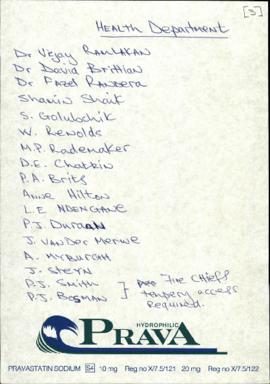 [3]
HEALTH Department
Dr Vejay RAMLAKAN
Dr David Brittian
Dr Fazel RANDERA
Shamin Shaik
S. Golubchik
W. Renolds
M.P. Rademaker
D.E. Chatkin
P.A. Brits
Anne Hilton
L.E NDENGANE
P.J. Duraan
J. VanDer Merwe
A. MYBURGH
J. STEYN
P.J. Smith } Fire Chiefs
P.J. BOSMAN tempory access
Required.
HYDROPHILIC
PRAVA
PRAVASTATIN SODIUM S4 10 mg Reg no X/7.5/121 20 mg Reg no X/7.5/122